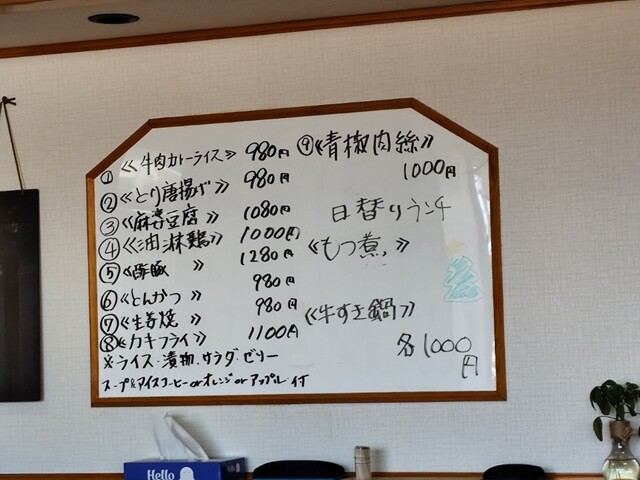 ① 《牛肉カレーライス》 980円
② 《とり唐揚げ》 980円
③ 《麻婆豆腐》 1080円
④ 《油淋鶏》 1000円
⑤ 《酢豚》 1280円
⑥ 《とんかつ》 980円
⑦ 《生姜焼》 980円
⑧ 《カキフライ》 1100円
※ライス・漬物、サラダ ゼリー
スープ&アイスコーヒー or オレンジ or アップル 付
⑨ 《青椒肉絲》
1000円
日替りランチ
《もつ煮》
《牛すき鍋》
各1000
円
Hello